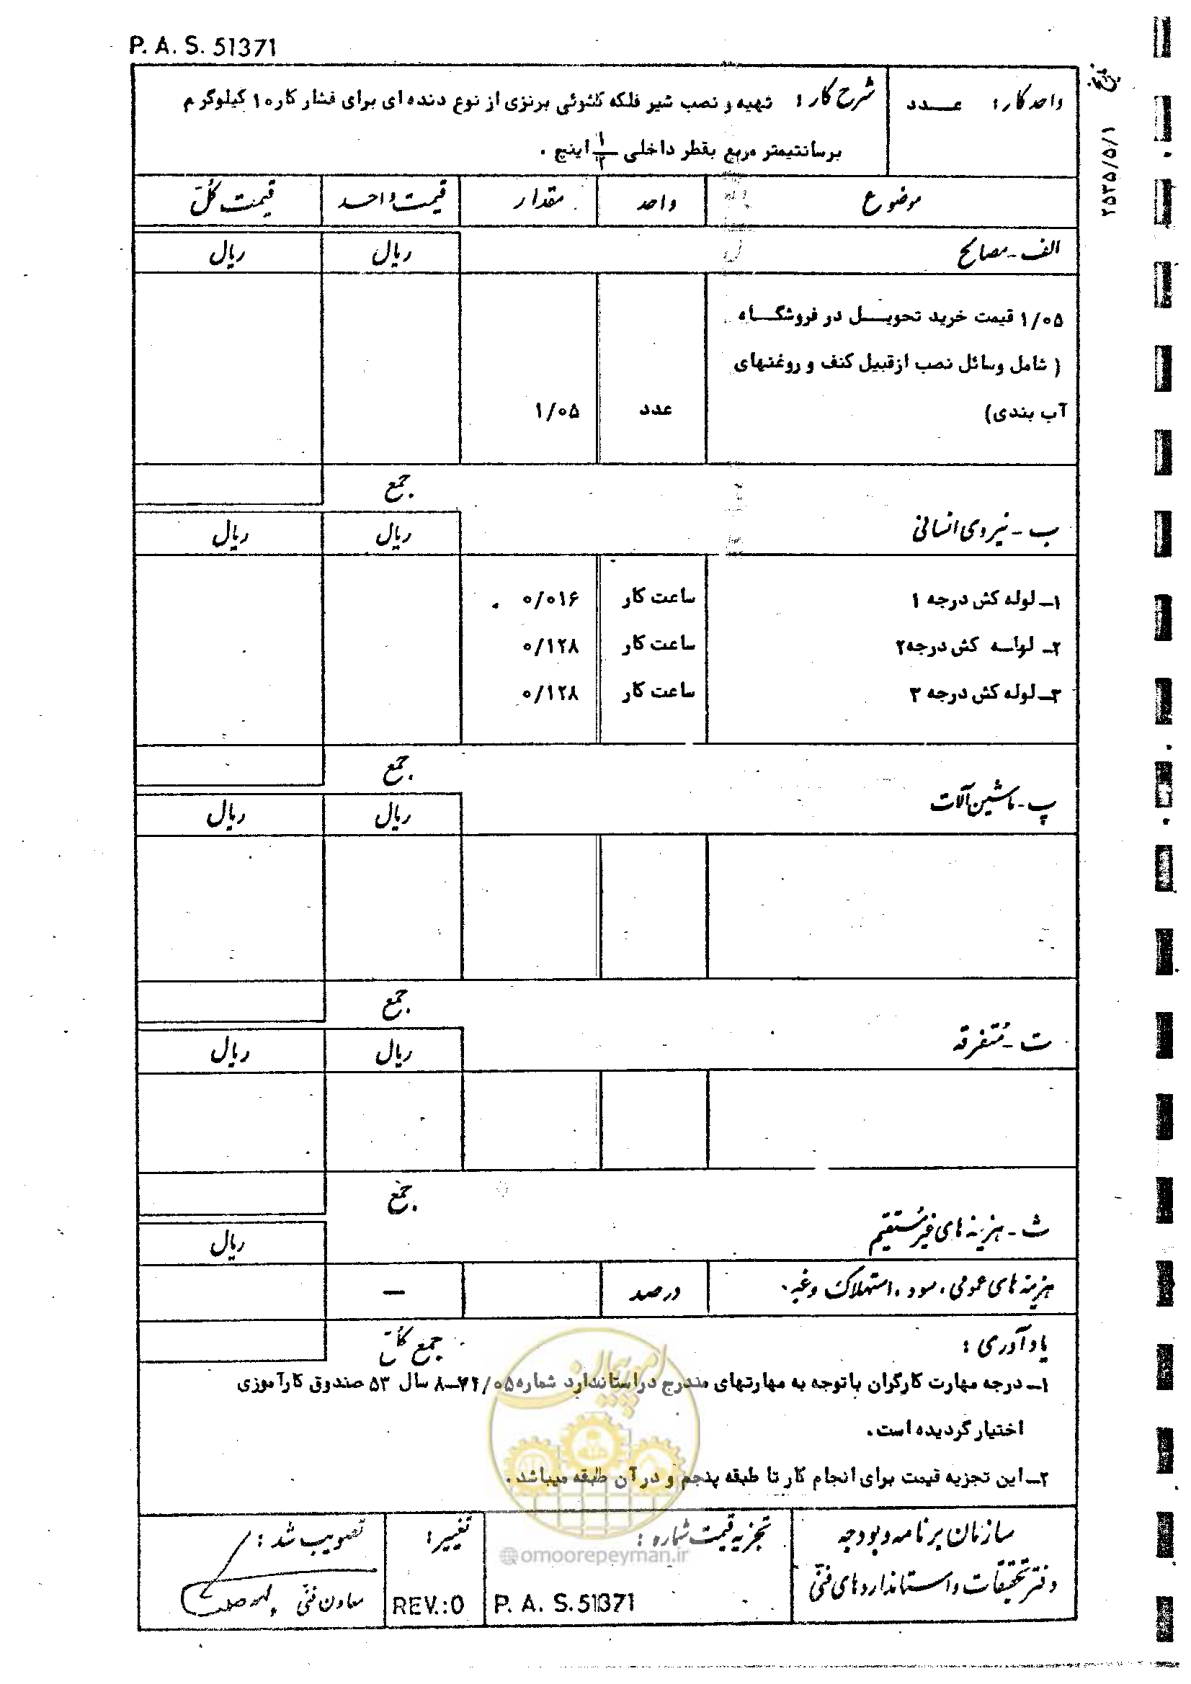 P. A. S. 51371
تاریخ ۲۵۳۵/۵/۱
واحد کار : عـــدد
شرح کار : تهیه و نصب شیر فلکه کشوئی برنزی از نوع دنده ای برای فشار کار ۱۰ کیلوگرم
برسانتیمتر مربع بقطر داخلی ۱/۲ اینچ .
موضوع واحد مقدار قیمت واحد قیمت کل
الف - مصالح ریال ریال
۱/۰۵ قیمت خرید تحویـــل در فروشگــاه
( شامل وسائل نصب ازقبیل کنف و روغنهای
آب بندی) عدد ۱/۰۵
جمع
ب - نیروی انسانی ریال ریال
۱ـ لوله کش درجه ۱ ساعت کار ۰/۰۱۶
۲ـ لوله کش درجه۲ ساعت کار ۰/۱۲۸
۳ـ لوله کش درجه ۳ ساعت کار ۰/۱۲۸
جمع
پ - ماشین آلات ریال ریال
جمع
ت - متفرقه ریال ریال
جمع
ث - هزینه های غیرمستقیم ریال
هزینه های عمومی ، سود ، استهلاک وغیره درصد —
جمع کل
یادآوری :
۱ـ درجه مهارت کارگران باتوجه به مهارتهای مندرج دراستاندارد شماره ۷۲/۰۵ـ۸ سال ۵۳ صندوق کارآموزی
اختیار گردیده است .
۲ـ این تجزیه قیمت برای انجام کار تا طبقه پنجم و درآن طبقه میباشد .
امور پیمان
@omoorepeyman.ir
سازمان برنامه و بودجه
دفتر تحقیقات و استانداردهای فنی
تجزیه قیمت شماره :
P. A. S. 51371
تغییر :
REV.:0
تصویب شد :
معاون فنی